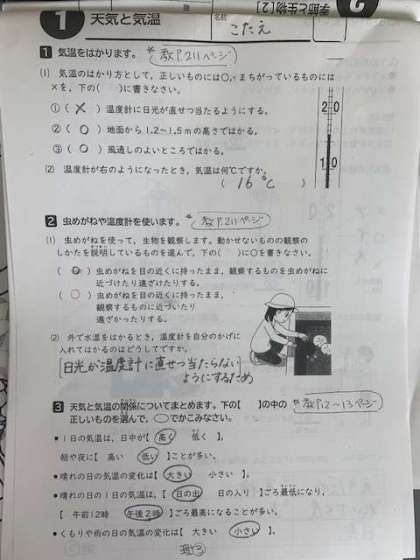 1 天気と気温 名前 こたえ
季節と生物(2) 2
1 気温をはかります。 *教P.211ページ
(1) 気温のはかり方として、正しいものには○、まちがっているものには
×を、下の( )に書きなさい。
①( × ) 温度計に日光が直せつ当たるようにする。
②( ○ ) 地面から1.2~1.5mの高さではかる。
③( ○ ) 風通しのよいところではかる。
(2) 温度計が右のようになったとき、気温は何℃ですか。
( 16℃ )
20
10
2 虫めがねや温度計を使います。 *教P.211ページ
(1) 虫めがねを使って、生物を観察します。動かせないものの観察の
しかたを説明しているものを選んで、下の( )に○を書きなさい。
( ) 虫めがねを目の近くに持ったまま、観察するものを虫めがねに
近づけたり遠ざけたりする。
( ○ ) 虫めがねを目の近くに持ったまま、
観察するものに近づいたり
遠ざかったりする。
(2) 外で水温をはかるとき、温度計を自分のかげに
入れてはかるのはどうしてですか。
[日光が温度計に直せつ当たらない
ようにするため
3 天気と気温の関係についてまとめます。下の【 】の中の *教P.12~13ページ
正しいものを選んで、○でかこみなさい。
● 1日の気温は、日中が【 高く 低く 】、
朝や夜に【 高い 低い 】ことが多い。
● 晴れの日の気温の変化は【 大きい 小さい 】。
● 晴れの日の1日の気温は、【 日の出 日の入り 】ごろ最低になり、
【 午前12時 午後2時 】ごろ最高になることが多い。
● くもりや雨の日の気温の変化は【 大きい 小さい 】。